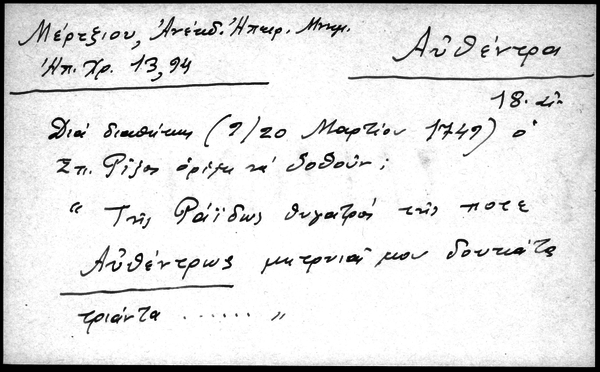 Μέρτζιου, Ἀνέκδ. Ἠπειρ. Μνημ.
Ἠπ. Χρ. 13, 94
Αὐθέντρα
18. αἰ.
Διά διαθήκης (9/20 Μαρτίου 1749) ὁ
Σπ. Ρίζος ὁρίζει νά δοθοῦν;
“ Τῆς Ράϊδως θυγατρός τῆς ποτε
Αὐθέντρως μητρυιᾶ μου δουκάτα
τριάντα ...... „